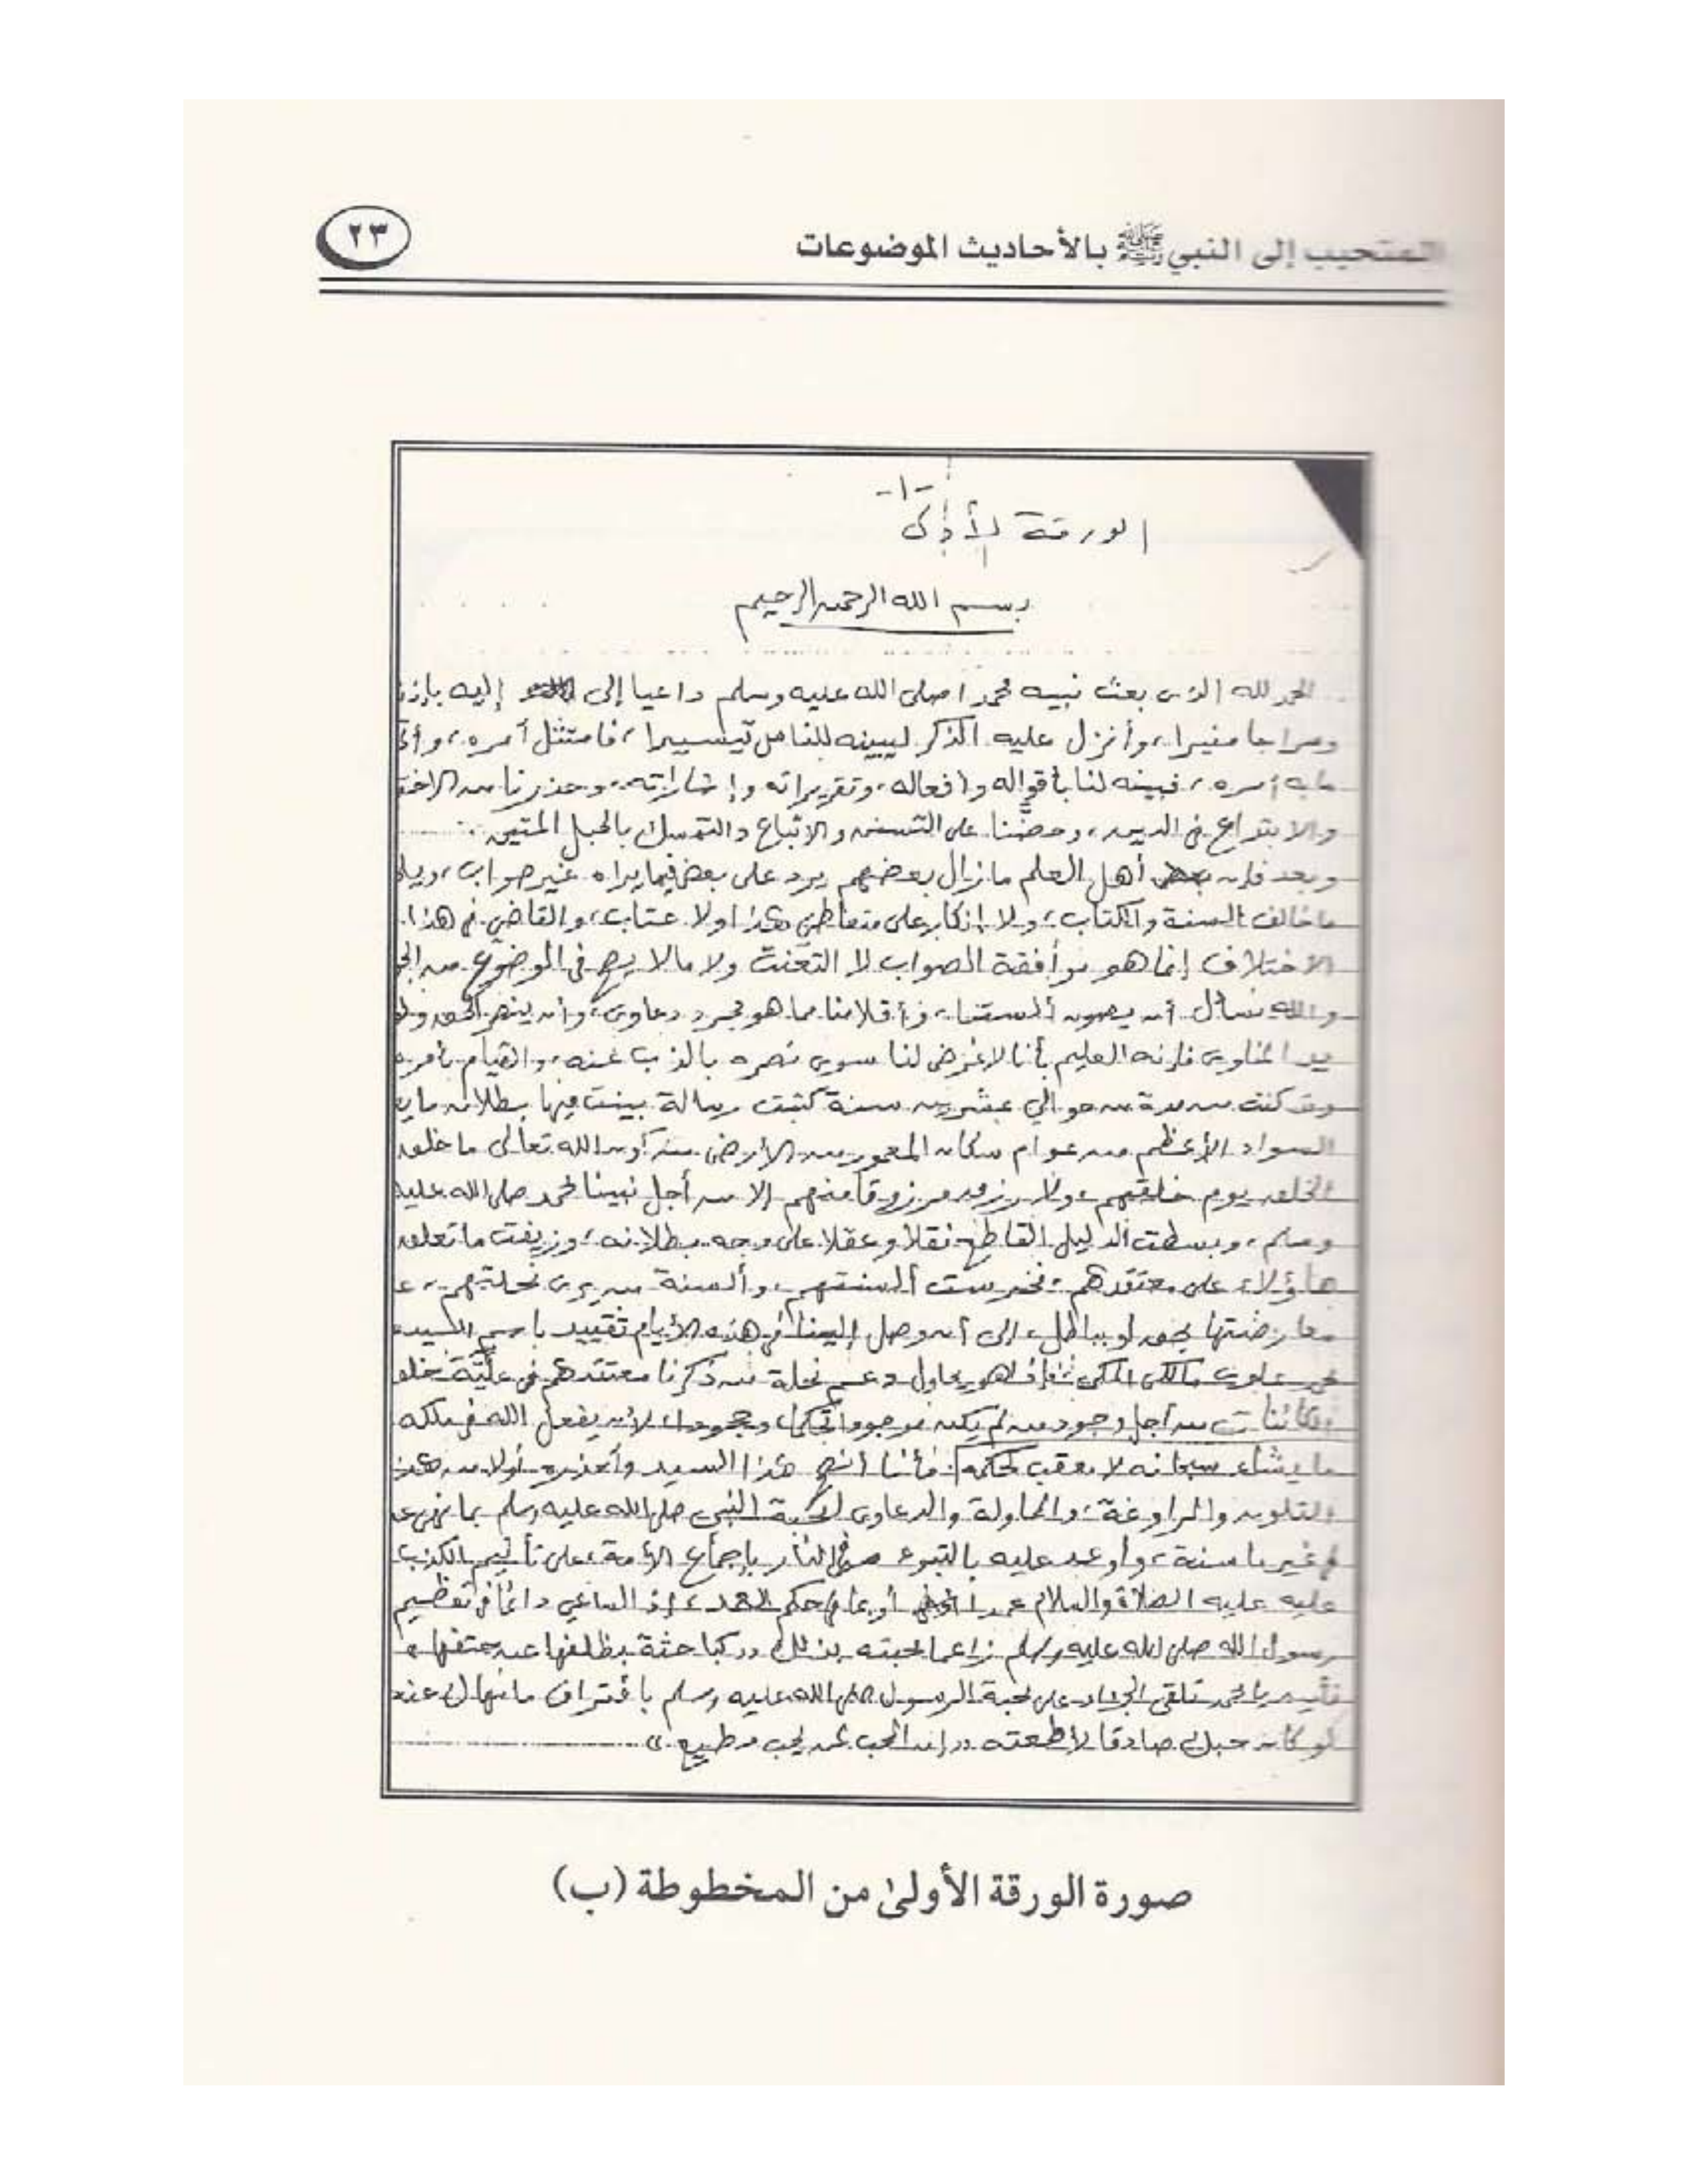 المتحبب إلى النبي ﷺ بالأحاديث الموضوعات
٢٣
-١-
الورقة الأولى
بسم الله الرحمن الرحيم
الحمد لله الذي بعث نبيه محمدا صلى الله عليه وسلم داعيا إلى إليه بإذنه
وسراجا منيرا، وأنزل عليه الذكر ليبينه للناس تيسيرا، فامتثل أمره، وأتى
ما به أمره، فبينه لنا بأقواله وأفعاله، وتقريراته وإشاراته، وحذرنا من
والابتداع في الدين، وحضنا على التسنن والاتباع والتمسك بالحبل المتين.
وبعد فإن أهل العلم ما زال بعضهم يرد على بعض فيما يراه غير صواب،
ما خالف السنة والكتاب، ولا إنكار على متعاطي هذا ولا عتاب، والقاضي في هذا
الاختلاف إنما هو موافقة الصواب لا التعنت ولا مالا يصح في الموضوع من
والله نسأل أن يصون ألسنتنا، وأقلامنا مما هو مجرد دعاوى، وأن ينصر الحق
المناوى فإنه العليم بأنا لا غرض لنا سوى نصره بالذب عنه، والقيام بأمره
وقد كنت من مدة من حوالي عشرين سنة كتبت رسالة بينت فيها بطلان ما
السواد الأعظم من عوام سكان المعمور من الأرض من كون الله تعالى ما خلق
الخلق يوم خلقهم، ولا رزق مرزوقا منهم إلا من أجل نبينا محمد صلى الله عليه
وسلم، وبسطت الدليل القاطع نقلا وعقلا على وجه بطلانه، وزيفت ما تعلق
هاؤلاء على معتقدهم، فخرست ألسنتهم، وألسنة من يرى نحلتهم، عن
معارضتها بحق أو بباطل، إلى أن وصل إلينا في هذه الأيام تقييد باسم السيد
محمد علوي مالكي المكي فإذا هو يحاول دعم نحلة من ذكرنا معتقدهم في علية خلق
الكائنات من أجل وجود من لم يكن موجودا تحكما، وجحودا، لأن يفعل الله في ملكه
ما يشاء سبحانه لا معقب لحكمه، فأنا أنصح هذا السيد وأحذره أولا من هذا
التلون والمراوغة، والمحاولة والدعاوى لمحبة النبي صلى الله عليه وسلم بما نهى عنه
في غير ما سنة، وأوعد عليه بالتبوء في النار بإجماع الأمة، على تأثيم الكذب
عليه عليه الصلاة والسلام عمدا أو ما في حكم العمد، إذ الساعي دائما في تعظيم
رسول الله صلى الله عليه وسلم زاعما محبته بذلك "كباحثة بظلفها عن حتفها"
فأين يا محمد تلقى الجواد على محبة الرسول صلى الله عليه وسلم باقتراف ما نهاك عنه
لو كان حبك صادقا لأطعته "إن المحب لمن يحب مطيع"
صورة الورقة الأولىٰ من المخطوطة (ب)